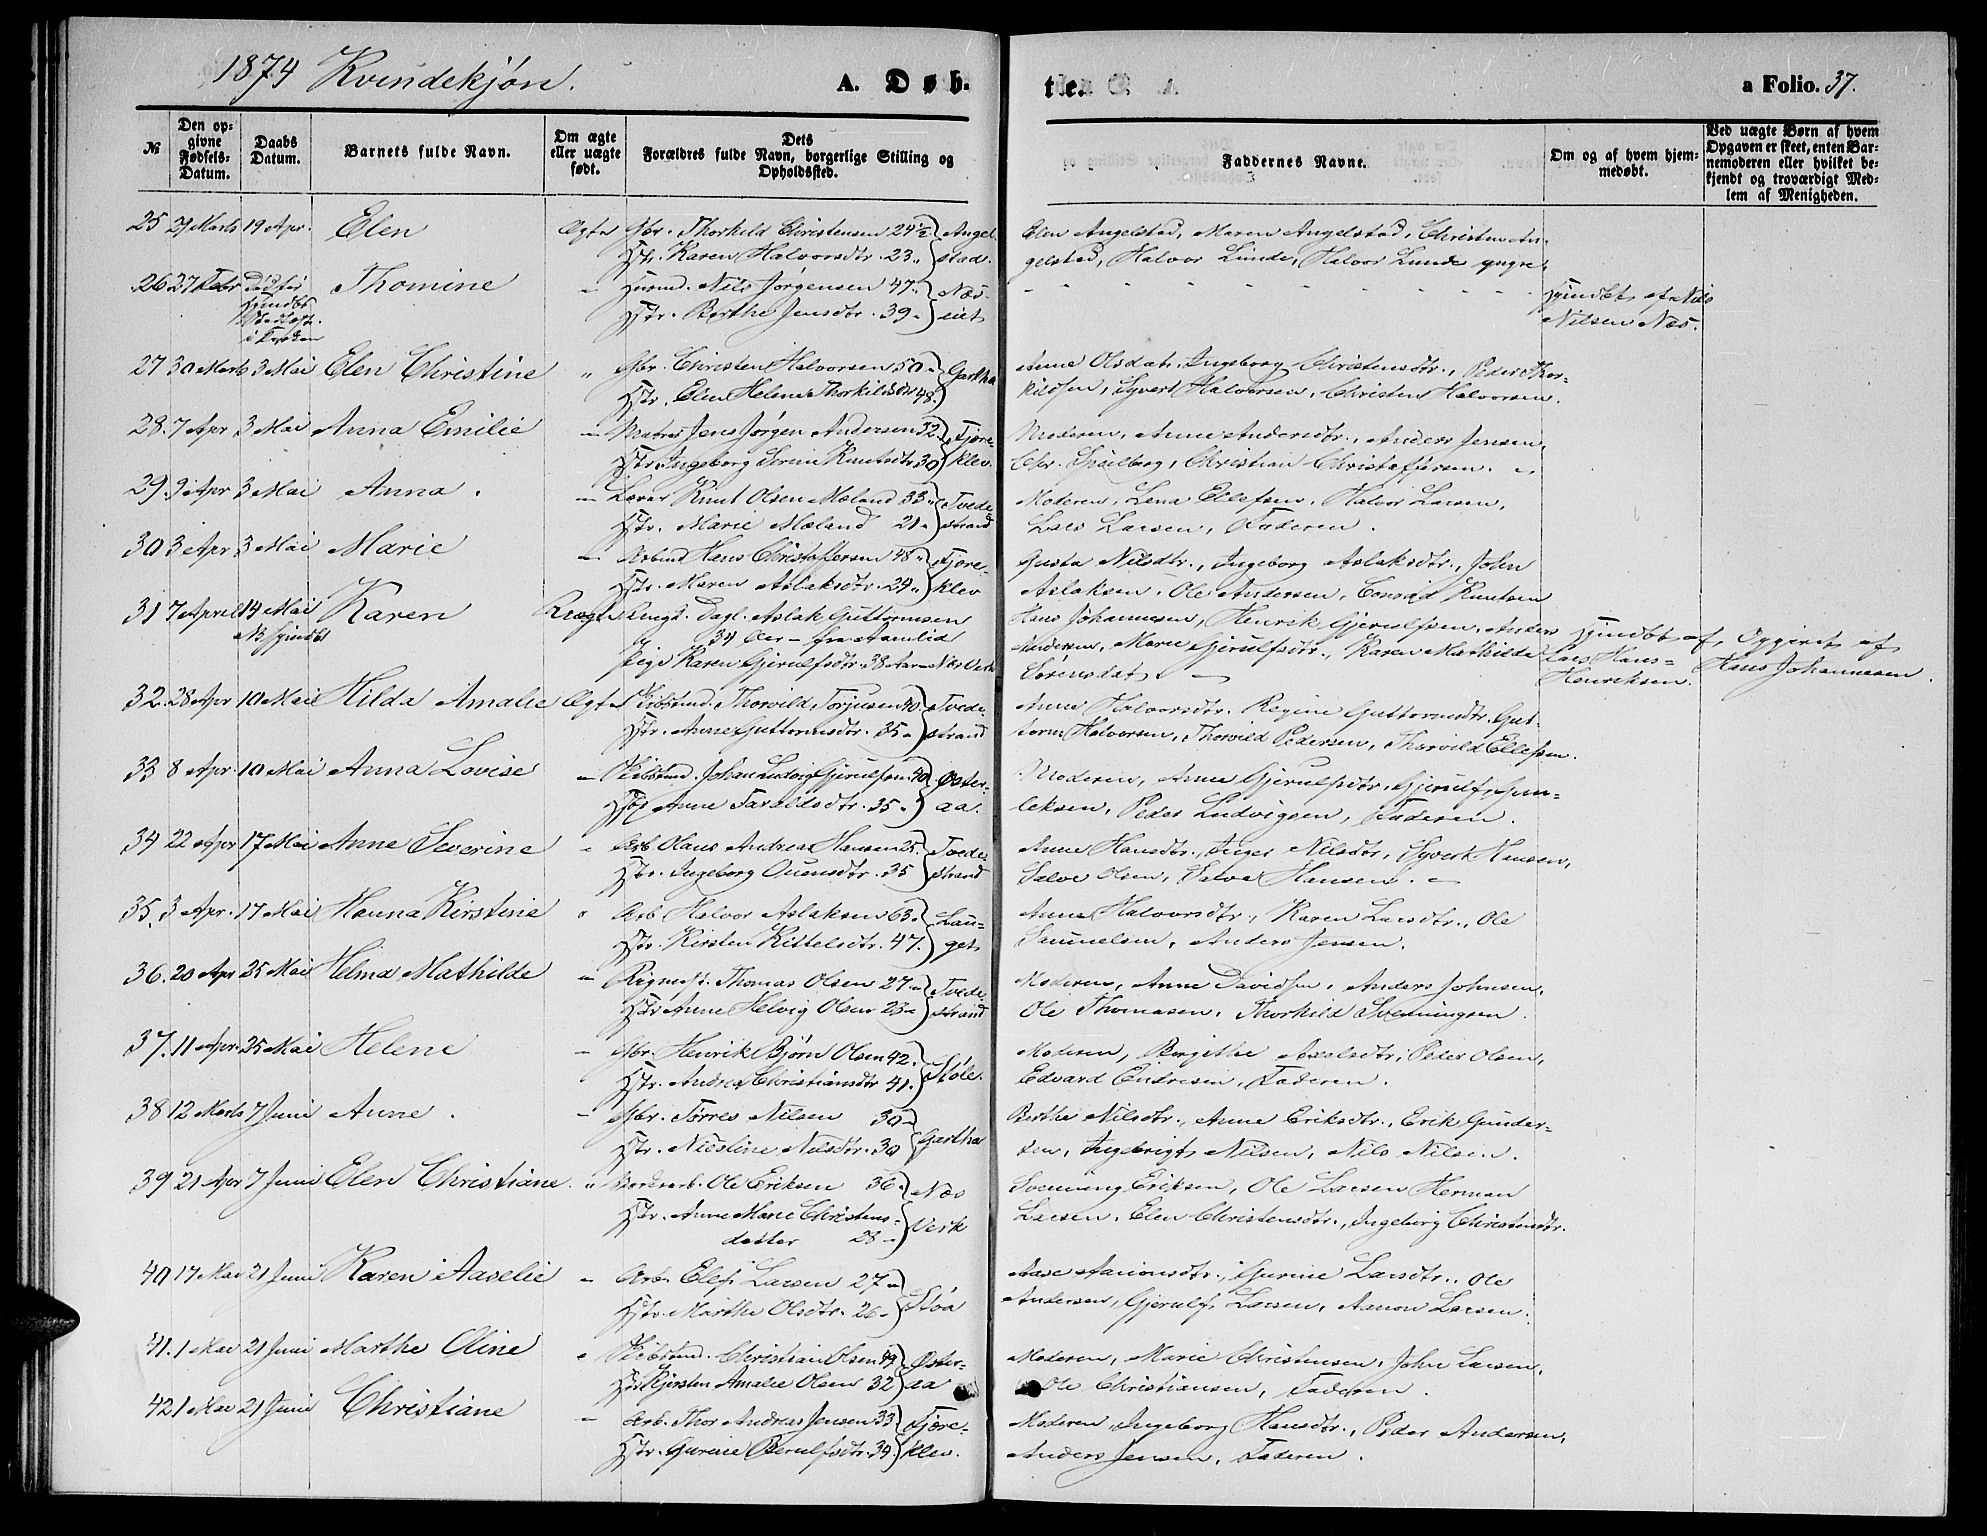 1874 Kvindekjøn.
A. Døb-
te.
a Folio. 37.
№
Den opgivne Fødsels-Datum.
Daabs Datum.
Barnets fulde Navn.
Om ægte eller uægte født.
Dets Forældres fulde Navn, borgerlige Stilling og Opholdssted.
Faddernes Navne.
Om og af hvem hjemmedøbt.
Ved uægte Børn af hvem Opgaven er skeet, enten Barnemoderen eller hvilket bekjendt og troværdigt Medlem af Menigheden.
25 29 Marts 19 Apr. Elen Ægte Gbr. Thorkild Christensen 24½ Angel-
Hstr. Karen Halvorsdtr. 23 „ stad.
Elen Angelstad, Maren Angelstad, Christen An-
gelstad, Halvor Lunde, Halvor Lunde yngre.
26 27 Febr Død før Thomine „ Husmd. Nils Jørgensen 47. Næs-
Hstr. Berthe Jensdtr. 39 „ eiet
Hjmdbt. af Nils
Nilsen Næs.
27 30 Marts 3 Mai Elen Christine „ Gbr. Christen Halvorsen 50 „ Gartha
Hstr. Elen Helene Thorkildsdtr 48.
Anne Olsdat., Ingeborg Christensdtr., Peder Thor-
kildsen, Syvert Halvorsen, Christen Halvorsen.
28. 7 Apr 3 Mai Anna Emilie — Matros Jens Jørgen Andersen 32. Fjære-
Hstr. Ingeborg Serine Knutsdtr 30 klev.
Moderen, Anne Andersdtr., Anders Jensen,
Chr. Spilberg, Christian Christoffersen.
29. 9 Apr 3 Mai Anna. — Lærer Knut Olsen Mæland 33 „ Tvede-
Hstr. Marie Mæland 21 „ strand
Moderen, Lena Ellefsen, Halvor Larsen,
Lars Larsen, Faderen.
30 3 Apr 3 Mai Marie — Arbmd Hans Christoffersen 48 „ Fjære-
Hstr. Maren Aslaksdtr. 24 „ klev
Gusta Nilsdtr., Ingeborg Aslaksdtr., John
Aslaksen, Ole Andersen, Conrad Knutsen
31 7 April 14 Mai Karen Uægte Ungk. Dagl. Aslak Guttormsen
NB hjmdbt 34 Aar — fra Aamlid
Pige Karen Gjerulfsdtr. 38 Aar — Næs Værk
Hans Johannesen, Henrik Gjerulfsen, Anders
Andersen, Marie Gjerulfsdtr., Karen Mathilde
Sørensdat.
Hjmdbt af
Lars Hans-
Henriksen.
Opgivet af
Hans Johannesen.
32. 28 Apr 10 Mai Hilda Amalie Ægte Skibstmd. Thorvild Torjusen 40. Tvede-
Hstr. Anne Guttormsdtr. 35 „ strand
Anne Halvorsdtr. Regine Guttormsdtr. Gut-
torm Halvorsen, Thorvild Pedersen, Thorvild Ellefsen.
33 8 Apr. 10 Mai Anna Lovise — Skibstmd. Johan Ludvig Gjerulfsen 40. Øster-
Hstr Anne Taraldsdtr. 35 „ aa.
Moderen, Anne Gjerulfsdtr. Gjerulf Gun-
leksen, Peder Ludvigsen, Faderen.
34 22 Apr 17 Mai Anne Severine „ Arb Olaus Andreas Hansen 25. Tvede-
Hstr. Ingeborg Ouensdtr. 35 strand
Anne Hansdtr., Inger Nilsdtr, Syvert Hansen,
Salve Olsen, Salve Hansen.
35. 3 Apr. 17 Mai Hanna Kirstine „ Arb Halvor Aslaksen 63. Lau-
Hstr. Kirsten Kittelsdtr. 47. get
Anne Halvorsdtr., Karen Larsdtr., Ole
Samuelsen, Anders Jensen.
36. 20 Apr 25 Mai Helma Mathilde — Rigmest. Thomas Olsen 27 „ Tvede-
Hstr Anne Helvig Olsen 23 „ strand
Moderen, Anne Davidsen, Anders Johnsen,
Ole Thomasen, Thorkild Svenningsen.
37. 11 Apr. 25 Mai Helene — Gbr. Henrik Bjørn Olsen 42. Støle.
Hstr. Andrea Christiansdtr 41.
Moderen, Birgithe Axelsdtr, Peder Olsen,
Edvard Endresen, Faderen.
38 12 Marts 7 Juni Anne. — Gbr. Tørres Nilsen 30 „ Gartha
Hstr. Nicoline Nilsdtr. 30
Berthe Nilsdtr., Anne Eriksdtr., Erik Gunder-
sen, Ingebrigt Nilsen, Nils Nilsen.
39 21 Apr 7 Juni Elen Christiane. „ Ole Eriksen 36. Næs
Hstr. Anne Marie Christens- Verk
datter 28 „
Svenning Eriksen, Ole Larsen Herman
Larsen, Elen Christensdtr., Ingeborg Christensdtr.
40 17 Mai 21 Juni Karen Aaselie „ Arb. Elef Larsen 27 „ Støa
Hstr. Marthe Olsdtr. 26 „
Aase Aanonsdtr., Gurine Larsdtr., Ole
Andersen, Gjerulf Larsen, Aanon Larsen.
41. 1 Mai 21 Juni Marthe Oline „ Skibstmd. Christian Olsen 49 Øster-
Hstr Kjersten Amalie Olsen 32 aa
Moderen, Marie Christensen, John Larsen,
Ole Christiansen, Faderen.
42 1 Mai 21 Juni Christiane — Arb. Thor Andreas Jensen 33 Fjære-
Hstr. Gurine Berulfsdtr. 34. klev.
Moderen, Ingeborg Hansdtr., Peder Andersen,
Anders Jensen, Faderen.